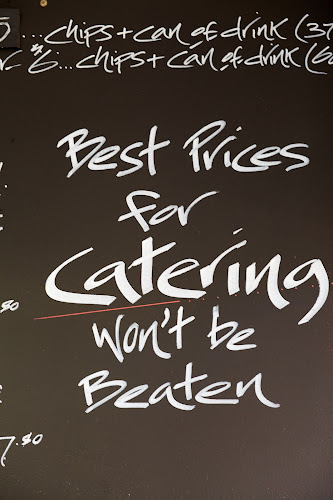 5 ...chips + can of drink (37
$6...chips + can of drink (60
Best Prices
for
Catering
.50
Won't be
Beaten
7.50